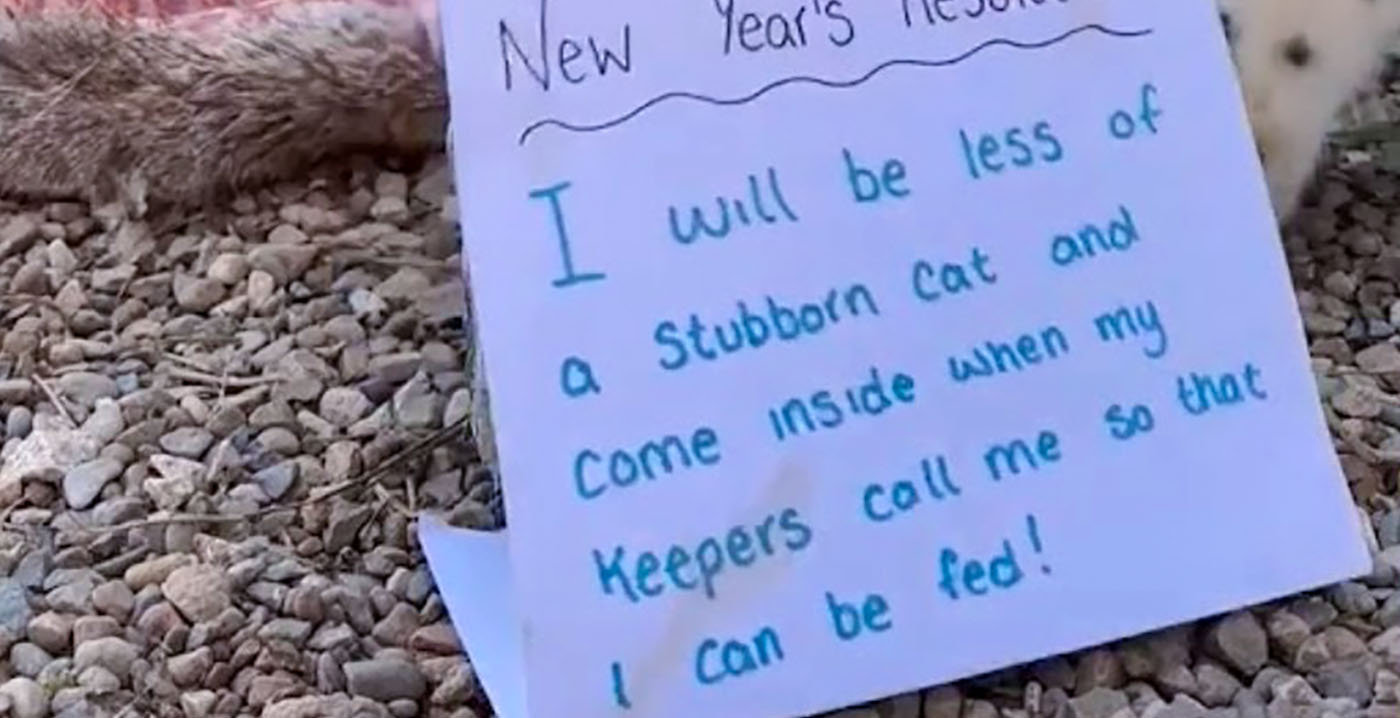 New Year's
I will be less of
a stubborn cat and
come inside when my
Keepers call me so that
I can be fed!